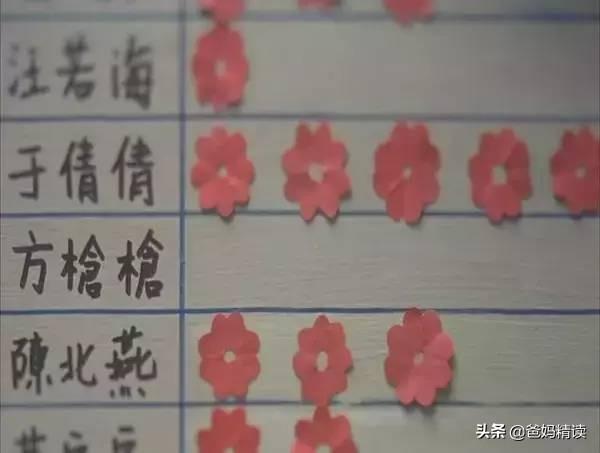 汪若海
于倩倩
方槍槍
陳北燕
头条 @爸妈精读